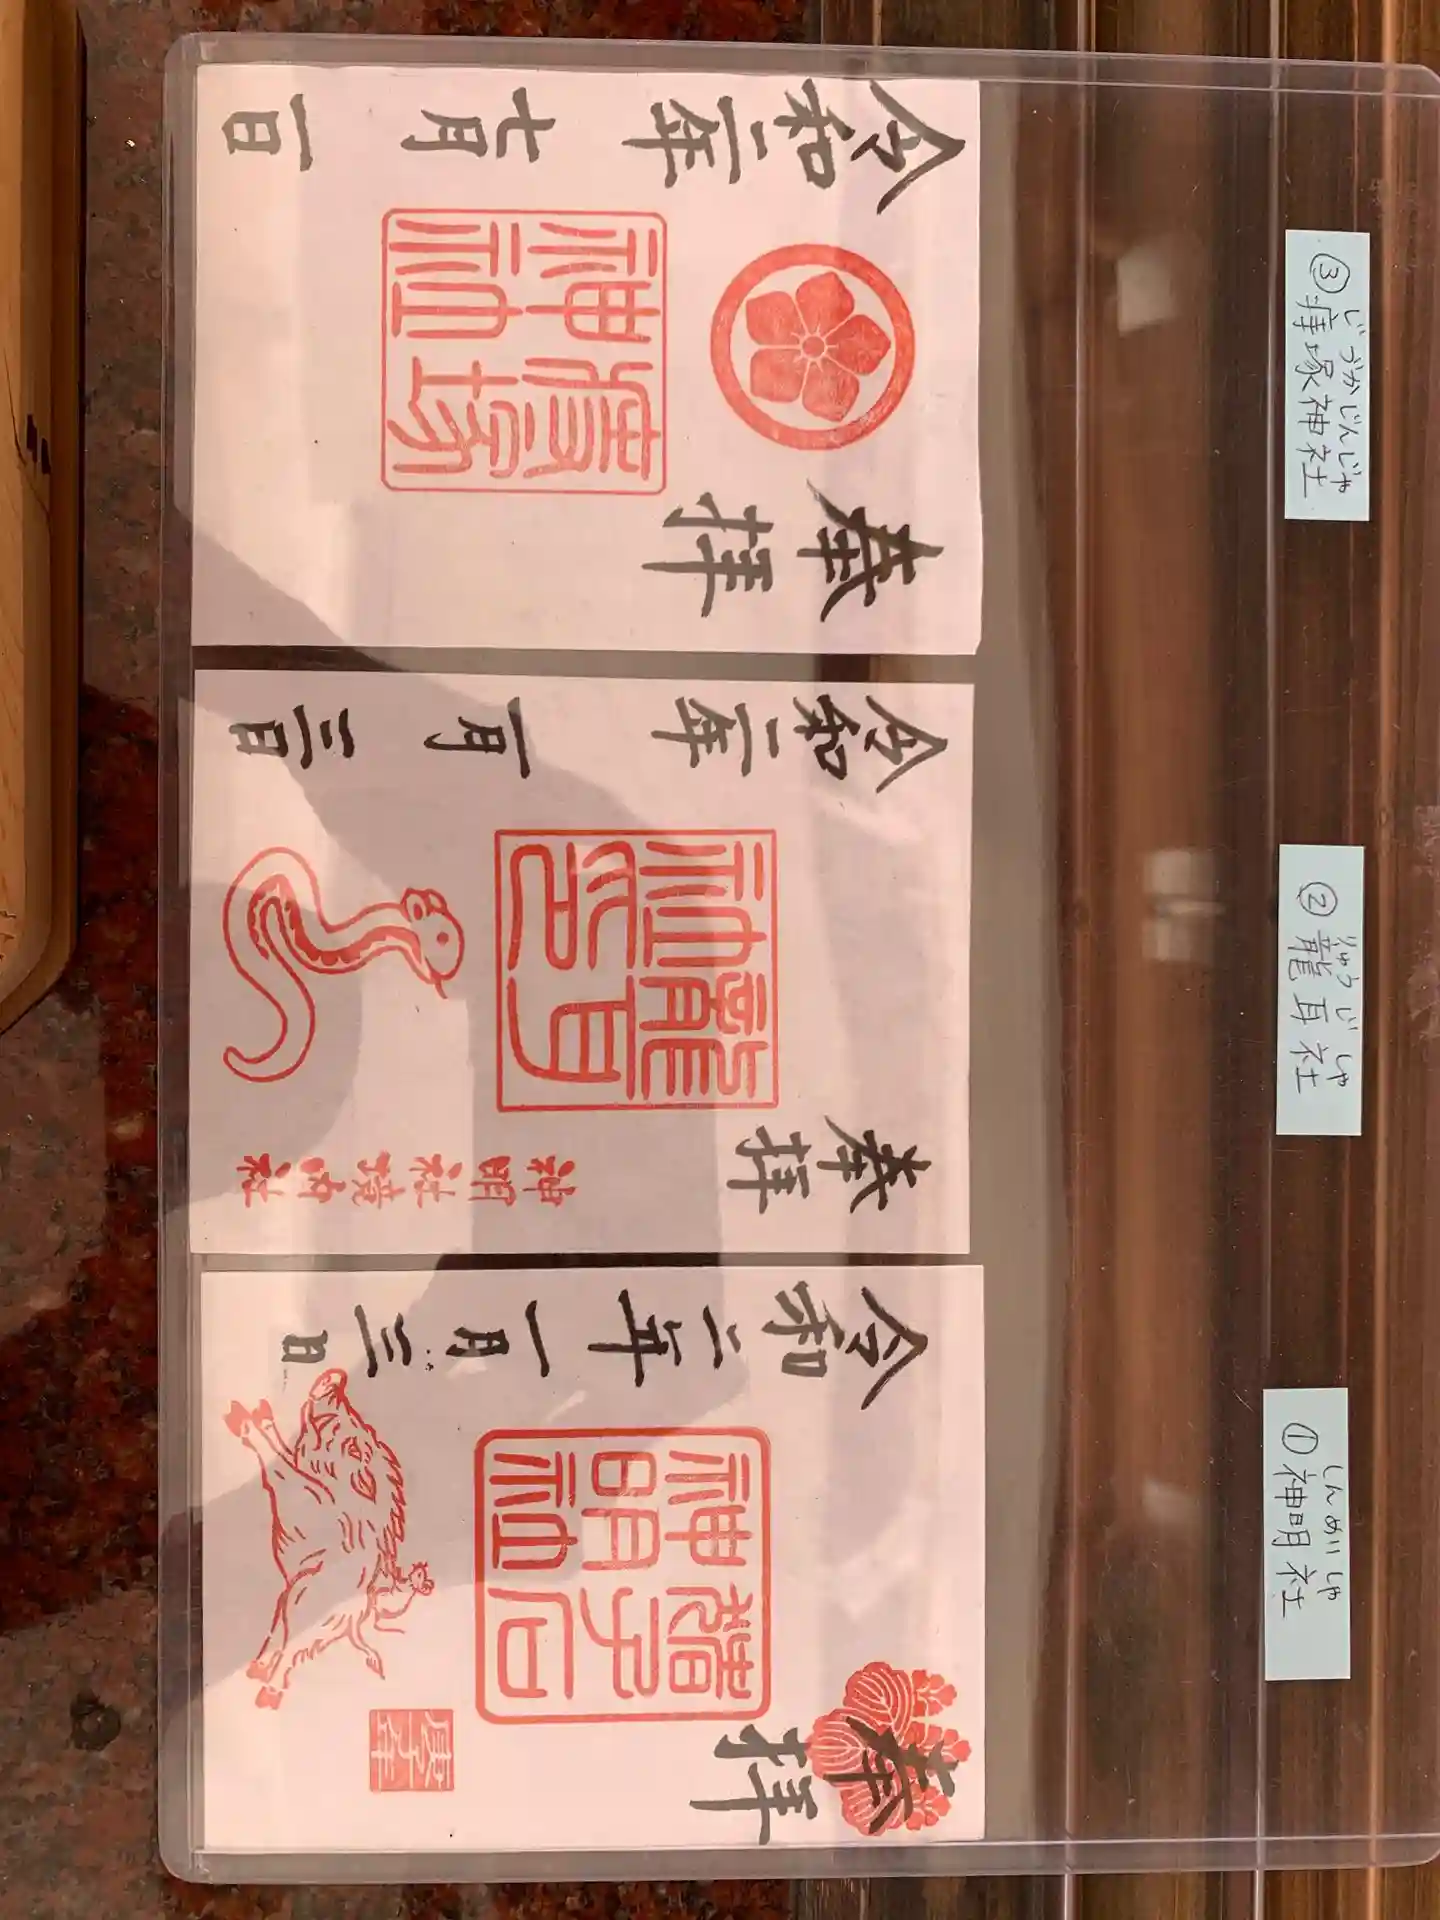 しんめいしゃ
①神明社
りゅうじしゃ
②龍耳社
じづかじんじゃ
③痔塚神社
奉拝
庚子年
猪子石
神明社
令和二年一月三日
奉拝
神明社境内社
龍耳
社印
令和二年一月三日
奉拝
痔塚
神社
令和二年七月一日